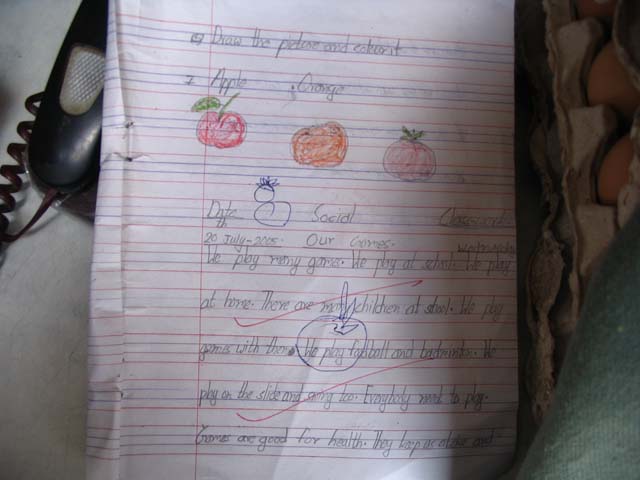 Draw the picture and colour it
7 Apple Orange
Date Social Classwork
20 July-2005. Our Games. Wednesday
We play many games. We play at school. We play
at home. There are many children at school. We play
games with them. We play football and badminton. We
play on the slide and swing too. Everybody need to play.
Games are good for health. They keep us active and